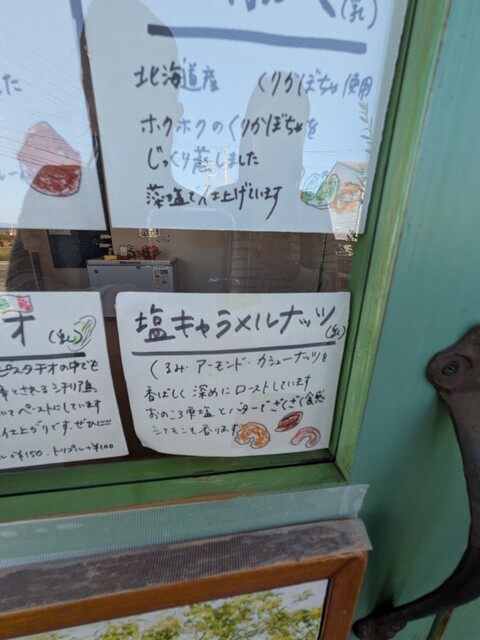 (乳)
北海道産 くりかぼちゃ使用
ホクホクのくりかぼちゃを
じっくり蒸しました
藻塩で仕上げています
た
オ (乳)
ピスタチオの中でも
とされるシチリア塩
ペーストにしています
仕上がりです、ぜひ!!
¥150. トリプル+¥100
塩キャラメルナッツ (乳)
くるみ・アーモンド・カシューナッツを
香ばしく深めにローストしています
おのころ雫塩とバターでざくざく食感
シナモンも香ります